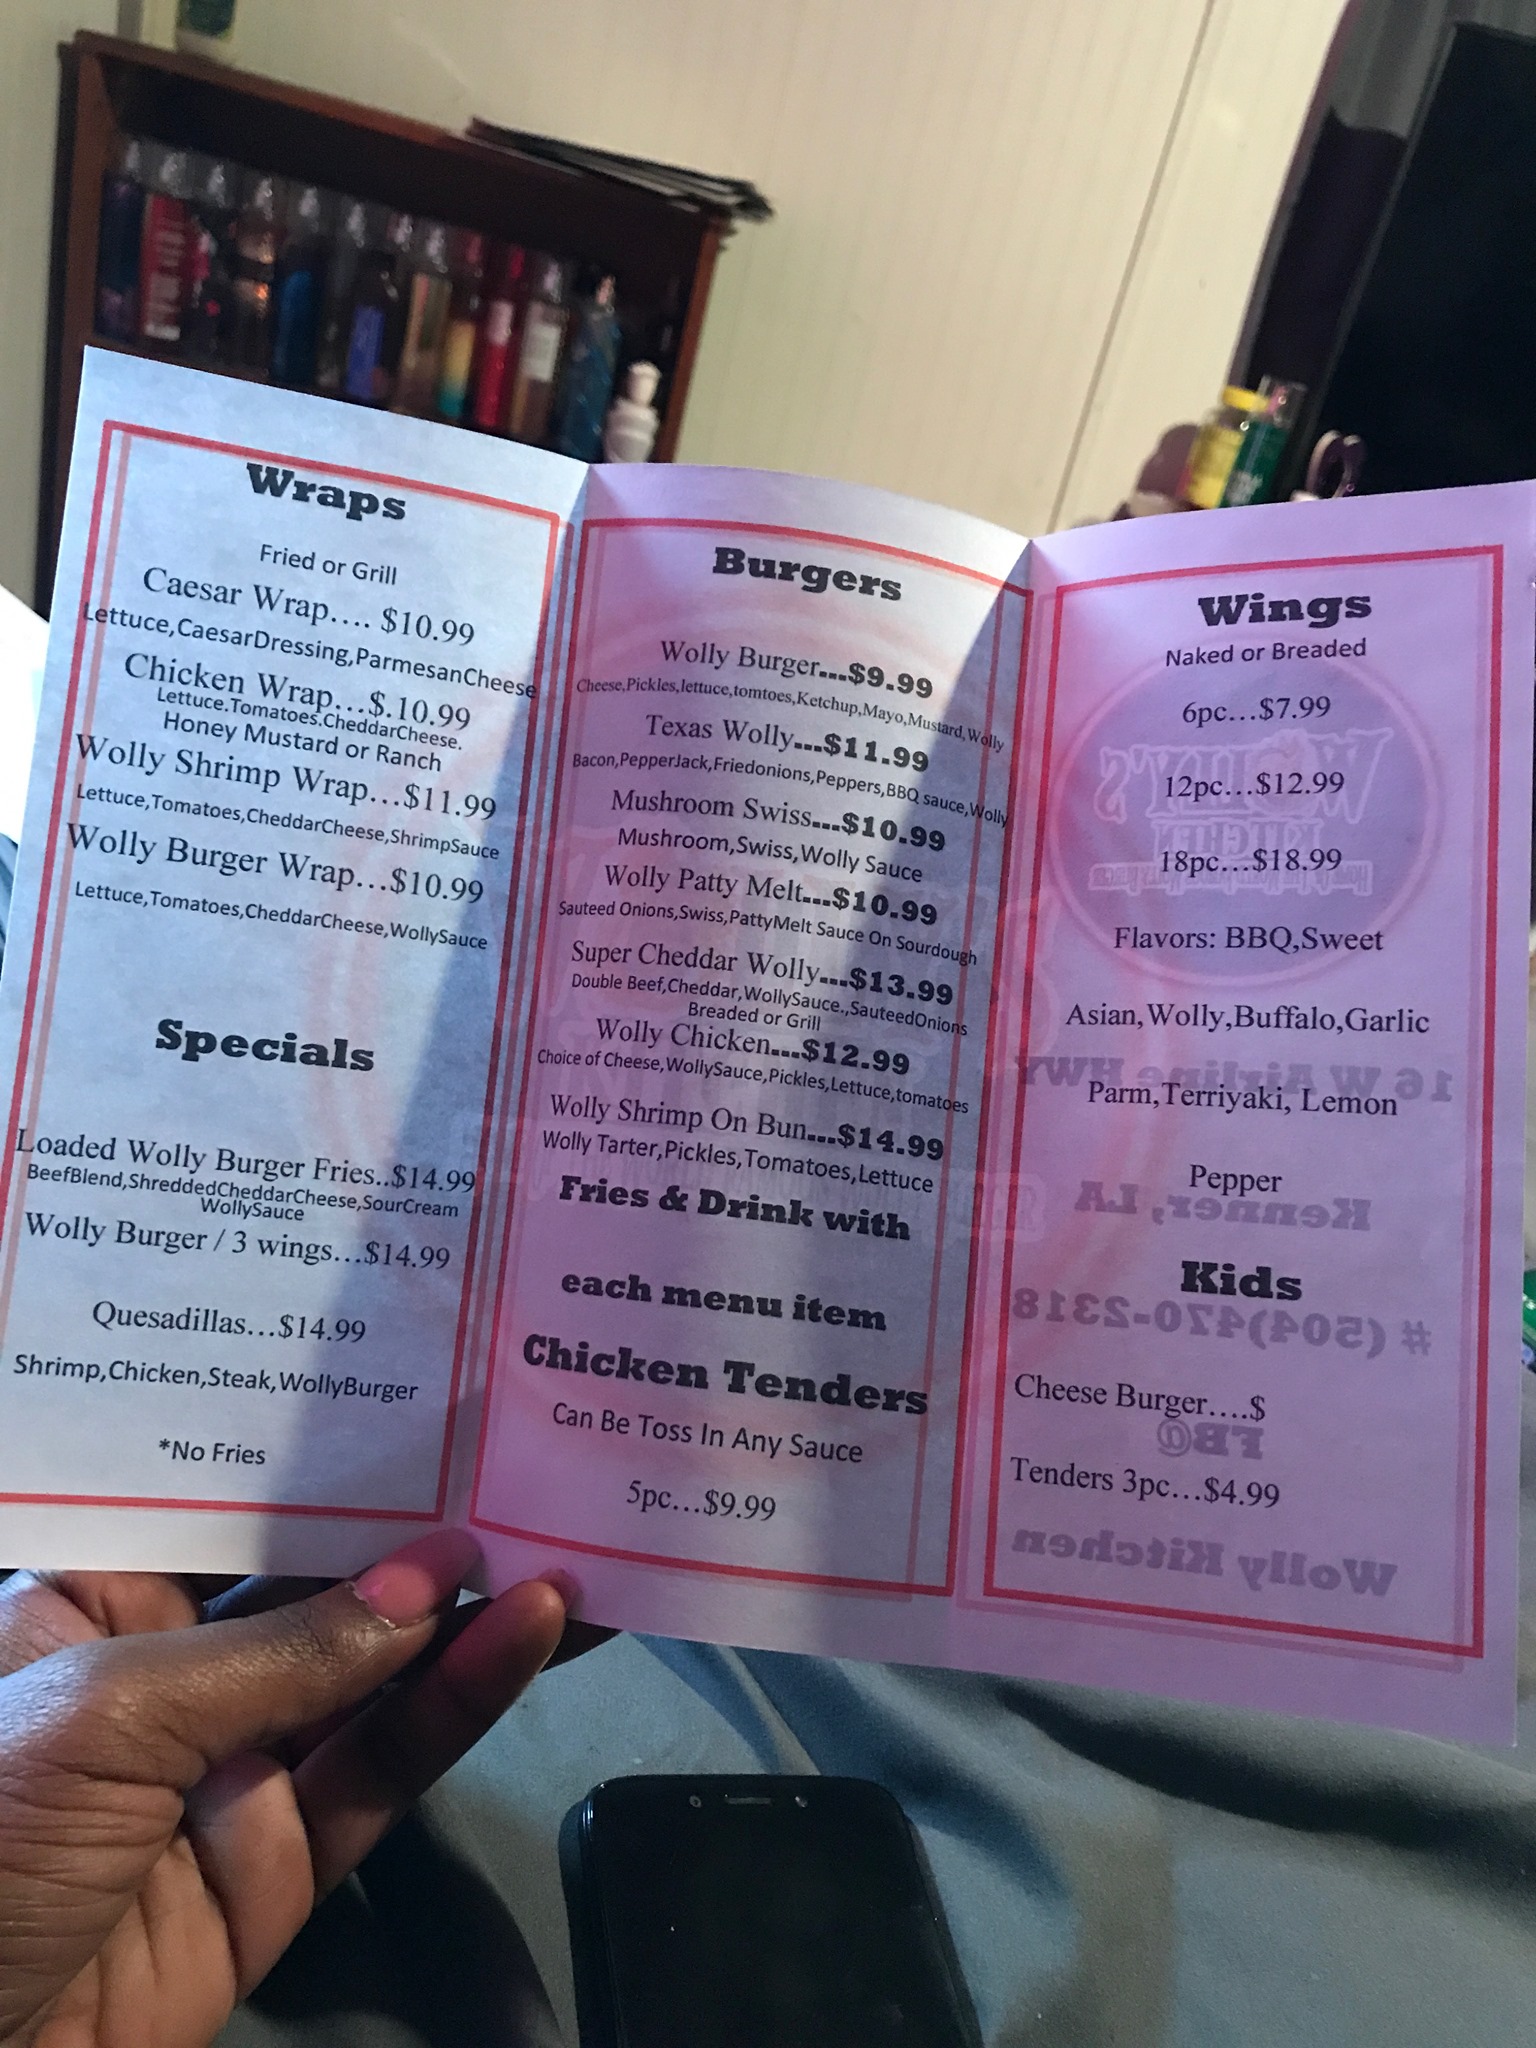 Wraps
Fried or Grill
Caesar Wrap.... $10.99
Lettuce,CaesarDressing,ParmesanCheese
Chicken Wrap...$.10.99
Lettuce.Tomatoes.CheddarCheese.
Honey Mustard or Ranch
Wolly Shrimp Wrap...$11.99
Lettuce,Tomatoes,CheddarCheese,ShrimpSauce
Wolly Burger Wrap...$10.99
Lettuce,Tomatoes,CheddarCheese,WollySauce
Specials
Loaded Wolly Burger Fries..$14.99
BeefBlend,ShreddedCheddarCheese,SourCream
WollySauce
Wolly Burger / 3 wings...$14.99
Quesadillas...$14.99
Shrimp,Chicken,Steak,WollyBurger
*No Fries
Burgers
Wolly Burger...$9.99
Cheese,Pickles,lettuce,tomtoes,Ketchup,Mayo,Mustard,Wolly
Texas Wolly...$11.99
Bacon,PepperJack,Friedonions,Peppers,BBQ sauce,Wolly
Mushroom Swiss...$10.99
Mushroom,Swiss,Wolly Sauce
Wolly Patty Melt...$10.99
Sauteed Onions,Swiss,PattyMelt Sauce On Sourdough
Super Cheddar Wolly...$13.99
Double Beef,Cheddar,WollySauce.,SauteedOnions
Breaded or Grill
Wolly Chicken...$12.99
Choice of Cheese,WollySauce,Pickles,Lettuce,tomatoes
Wolly Shrimp On Bun...$14.99
Wolly Tarter,Pickles,Tomatoes,Lettuce
Fries & Drink with
each menu item
Chicken Tenders
Can Be Toss In Any Sauce
5pc...$9.99
Wings
Naked or Breaded
6pc...$7.99
12pc...$12.99
18pc...$18.99
Flavors: BBQ,Sweet
Asian,Wolly,Buffalo,Garlic
Parm,Terriyaki, Lemon
Pepper
Kids
Cheese Burger....$
Tenders 3pc...$4.99
WOLLY'S
KITCHEN
16 W Airline HWY
Kenner, LA
# (504)470-2318
FB@
Wolly Kitchen